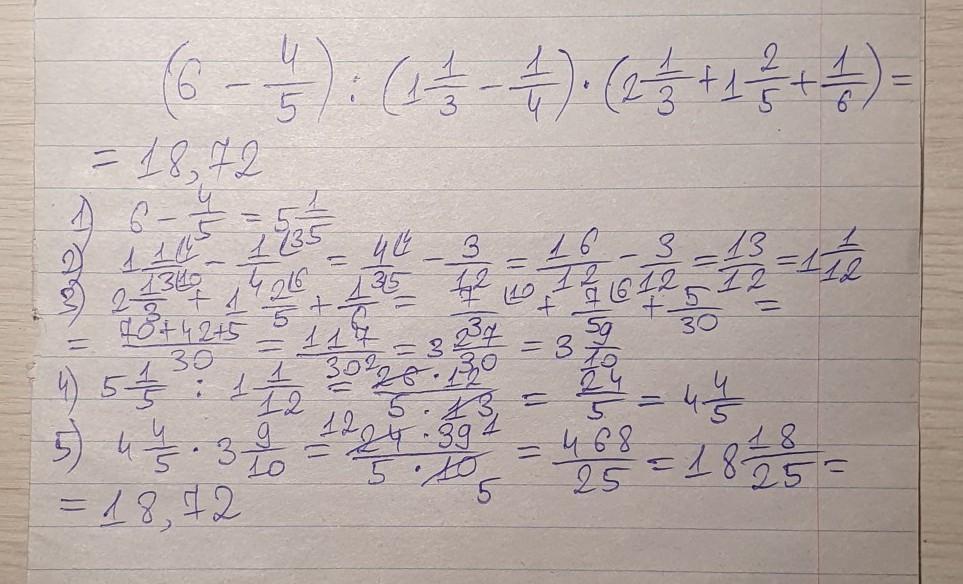 (6 - 4/5) : (1 1/3 - 1/4) · (2 1/3 + 1 2/5 + 1/6) =
= 18,72
1) 6 - 4/5 = 5 1/5
2) 1 1/3 - 1/4 = 4/3 - 3/12 = 16/12 - 3/12 = 13/12 = 1 1/12
3) 2 1/3 + 1 2/5 + 1/6 = 7/3 + 7/5 + 5/30 =
= 70+42+5/30 = 117/30 = 3 27/30 = 3 9/10
4) 5 1/5 : 1 1/12 = 26·12/5·13 = 24/5 = 4 4/5
5) 4 4/5 · 3 9/10 = 24·39/5·10 = 468/25 = 18 18/25 =
= 18,72